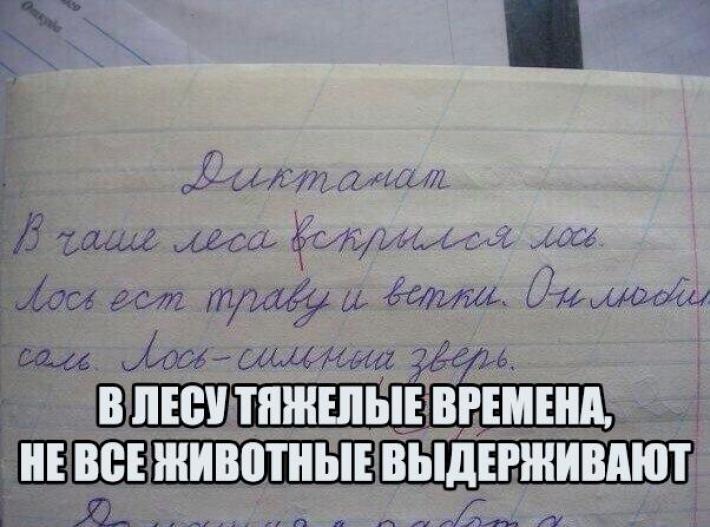 Откуда
Диктанат
В чаше леса вскрылся лось.
Лось ест траву и ветки. Он любит
соль. Лось-сильныи зверь.
В ЛЕСУ ТЯЖЕЛЫЕ ВРЕМЕНА,
НЕ ВСЕ ЖИВОТНЫЕ ВЫДЕРЖИВАЮТ